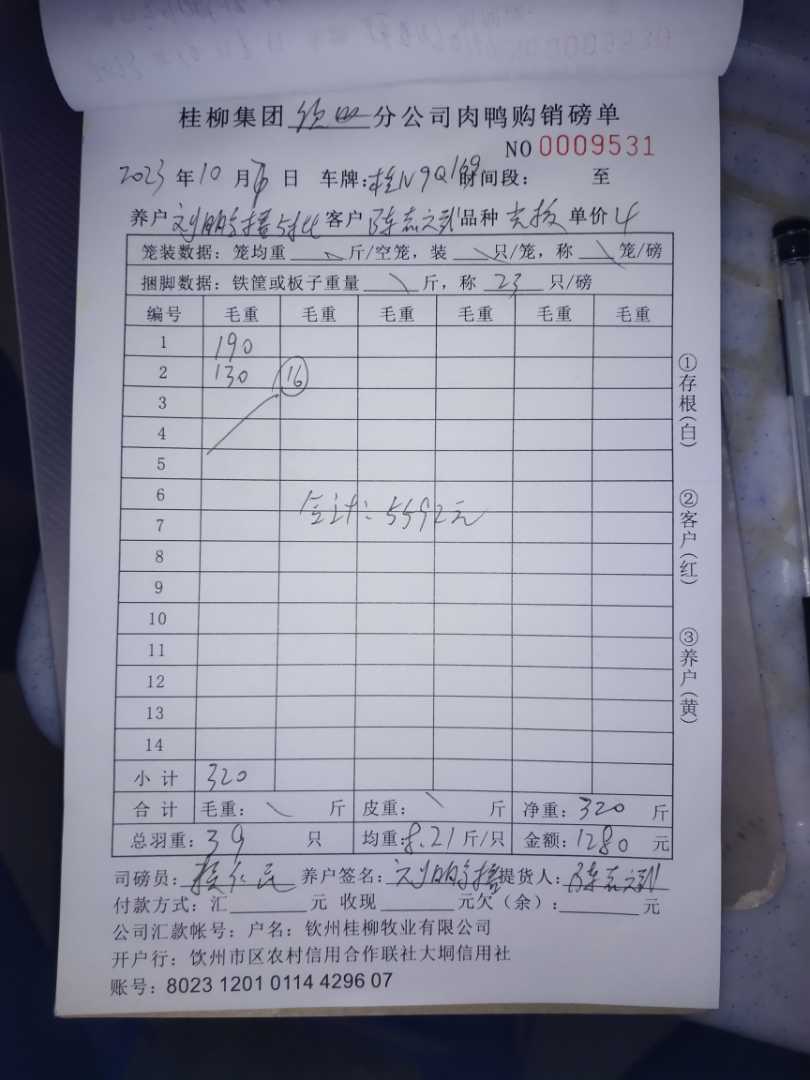 桂柳集团钦州分公司肉鸭购销磅单
NO 0009531
2023 年 10 月 日 车牌：桂N9Q169 时间段： 至
养户 客户 品种 单价 4
笼装数据：笼均重 斤/空笼，装 只/笼，称 笼/磅
捆脚数据：铁筐或板子重量 斤，称 23 只/磅
编号 毛重 毛重 毛重 毛重 毛重 毛重
1 190
2 130 16
3
4
5
6
合计：5592元
7
8
9
10
11
12
13
14
小计 320
合计 毛重： 斤 皮重： 斤 净重：320 斤
总羽重：39 只 均重：8.21 斤/只 金额：1280 元
司磅员： 养户签名： 提货人：
付款方式：汇 元 收现 元欠（余）： 元
公司汇款帐号：户名：钦州桂柳牧业有限公司
开户行：钦州市区农村信用合作联社大垌信用社
账号：8023 1201 0114 4296 07
①存根（白）
②客户（红）
③养户（黄）